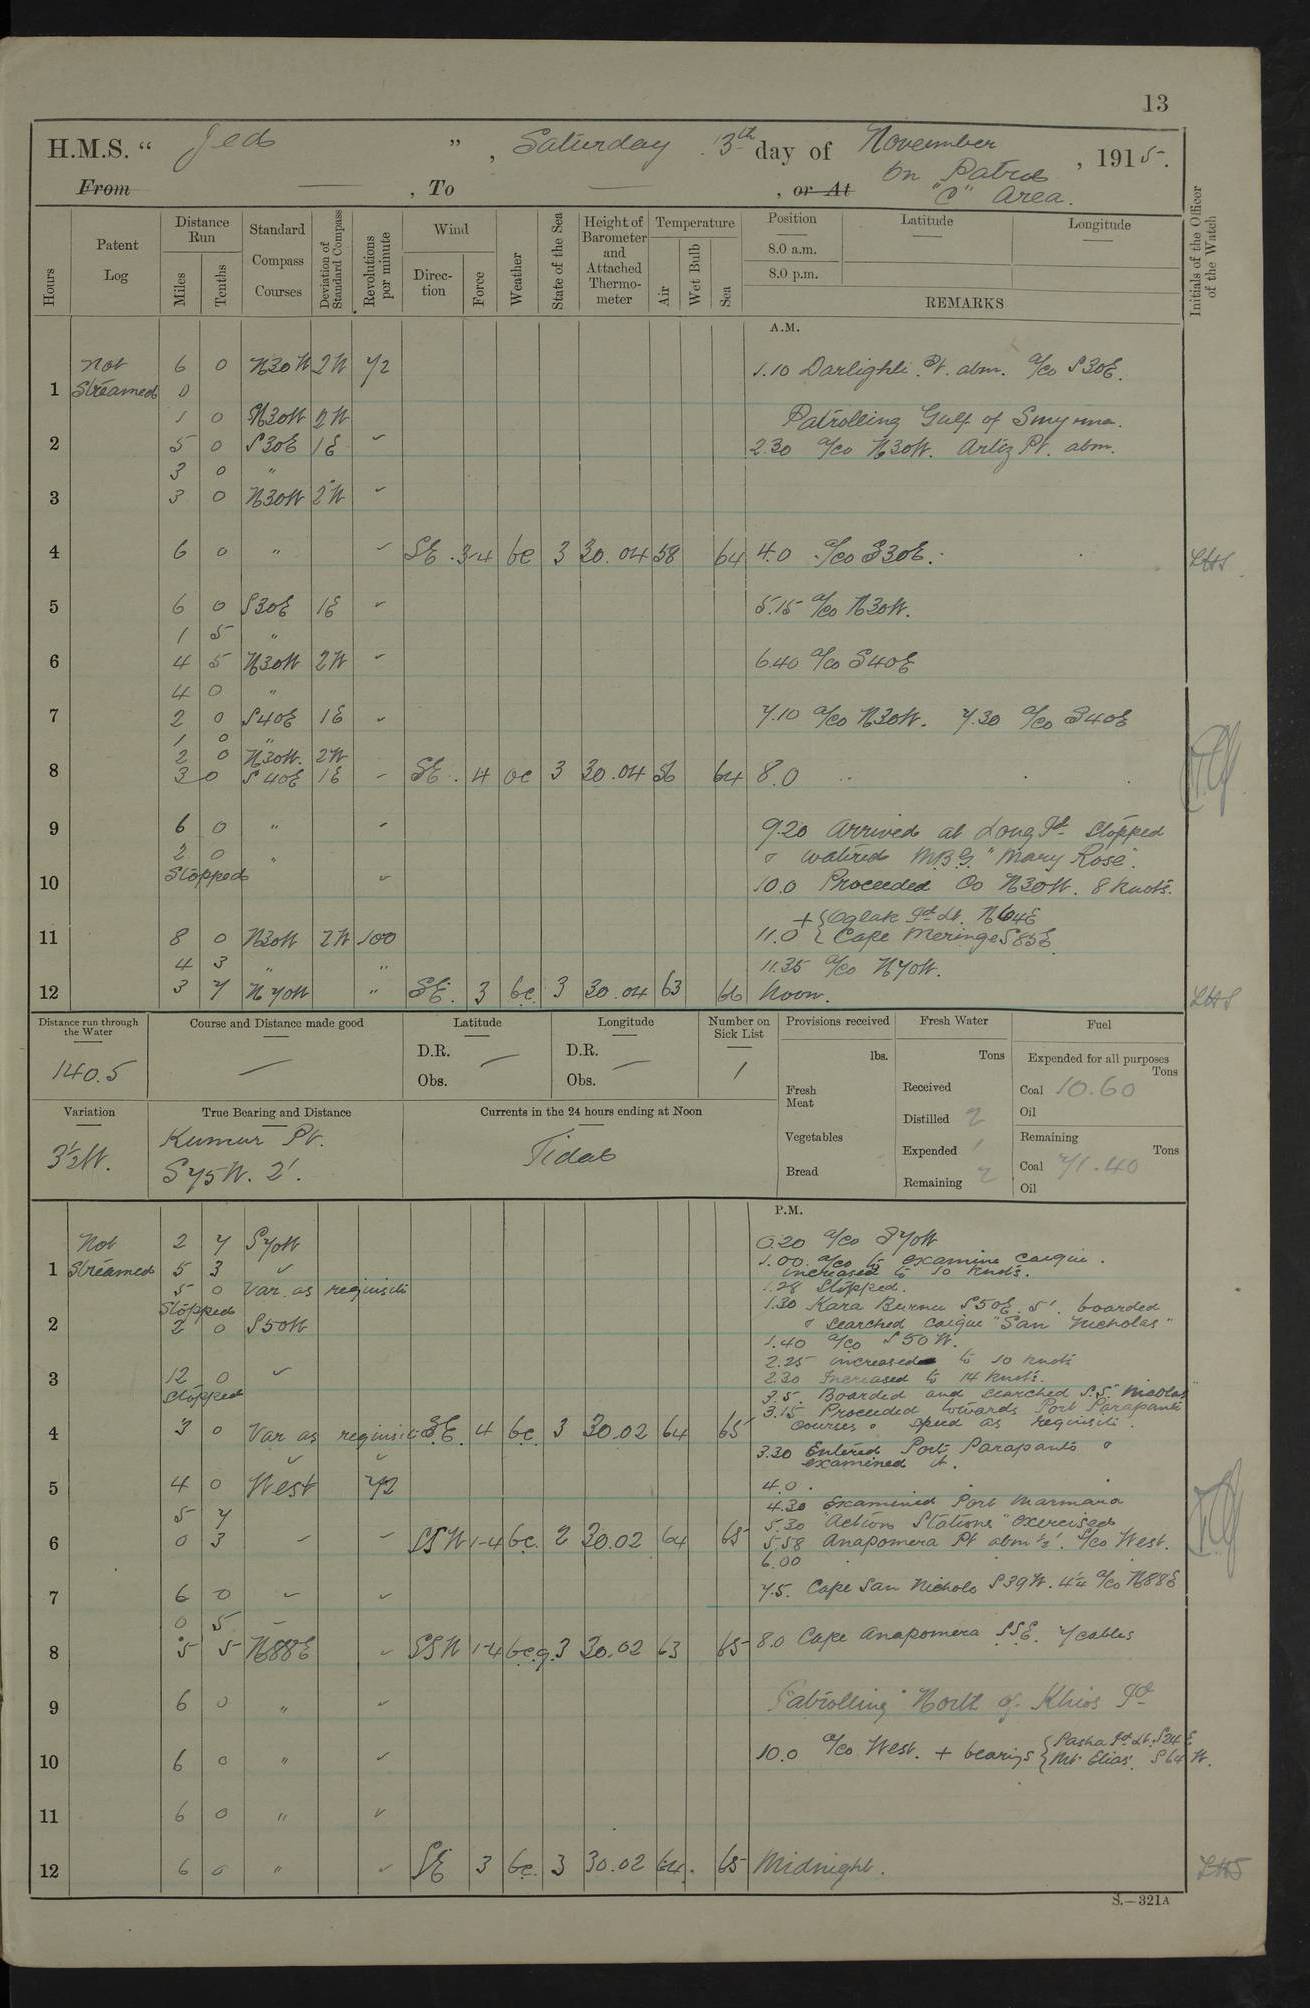 13
H.M.S. " Jed " , Saturday 13th day of November , 1915.
From — , To — , or At On Patrol "C" Area.
Hours
Patent Log
Distance Run
Miles
Tenths
Standard Compass Courses
Deviation of Standard Compass
Revolutions per minute
Wind
Direction
Force
Weather
State of the Sea
Height of Barometer and Attached Thermometer
Temperature
Air
Wet Bulb
Sea
Position
8.0 a.m.
8.0 p.m.
Latitude
Longitude
REMARKS
Initials of the Officer of the Watch
A.M.
Not 6 0 N30W 2W 72 1.10 Darlighli Pt. abm. a/co S30E.
1 Streamed 0
1 0 N30W 2W Patrolling Gulf of Smyrna.
2 5 0 S30E 1E ✓ 2.30 a/co N30W. Artiz Pt. abm.
3 0 "
3 3 0 N30W 2W ✓
4 6 0 " ✓ SE. 3-4 bc 3 30.04 58 64 4.0 a/co S30E. LHS
5 6 0 S30E 1E ✓ 5.15 a/co N30W.
1 5 "
6 4 5 N30W 2W ✓ 6.40 a/co S40E
4 0 "
7 2 0 S40E 1E ✓ 7.10 a/co N30W. 7.30 a/co S40E
1 0 "
2 0 N30W. 2W
8 3 0 S40E 1E ✓ SE. 4 oc 3 30.04 56 64 8.0
9 6 0 " ✓ 9.20 Arrived at Long Id. Stopped
2 0 " & watered M.B.G. "Mary Rose".
10 Stopped ✓ 10.0 Proceeded Co N30W. 8 knots.
+ { Oglak Id. Lt. N64E
11 8 0 N30W 2W 100 11.0 { Cape Meringe S85E
4 3 " " 11.35 a/co N70W.
12 3 7 N70W " SE. 3 bc. 3 30.04 63 66 Noon. LHS
Distance run through the Water
140.5
Course and Distance made good
—
Latitude
D.R. —
Obs.
Longitude
D.R. —
Obs.
Number on Sick List
1
Provisions received
lbs.
Fresh Meat
Vegetables
Bread
Fresh Water
Tons
Received
Distilled 2
Expended 1
Remaining 2
Fuel
Expended for all purposes
Tons
Coal 10.60
Oil
Remaining
Tons
Coal 71.40
Oil
Variation
3½W.
True Bearing and Distance
Kumur Pt.
S75W. 2'.
Currents in the 24 hours ending at Noon
Tidal
P.M.
Not 2 7 S70W 0.20 a/co S70W
1 Streamed 5 3 ✓ 1.00. a/co to examine caique.
increased to 10 knots.
5 0 Var. as requisite 1.28 Stopped.
Stopped 1.30 Kara Burnu S50E. 5'. boarded
2 2 0 S50W & searched caique "San Nicholas"
1.40 a/co S50W.
2.25 increased to 10 knots
3 12 0 ✓ 2.30 Increased to 14 knots.
Stopped 3.5. Boarded and searched S.S. "Nicolas"
3.15 Proceeded towards Port Parapanti
4 3 0 Var as requisite SE. 4 bc. 3 30.02 64 65 courses & speed as requisite.
3.30 Entered Port Parapanto &
examined it.
5 4 0 West 72 4.0
4.30 Examined Port Marmara
5 7 5.30 "Action Stations" exercised
6 0 3 ✓ ✓ SSW 1-4 bc. 2 30.02 64 65 5.58 Anapomera Pt abm ½'. S/co West.
6.00
7 6 0 ✓ ✓ 7.5. Cape San Nicholo S39W. 4¼ a/co N88E
0 5 -
8 5 5 N88E ✓ SSW 1-4 b.c.q. 3 30.02 63 65 8.0 Cape Anapomera SSE. 7 cables
9 6 0 " ✓ Patrolling North of Khios Id
10 6 0 " ✓ 10.0 a/co West. + bearings { Pasha Id. Lt. S24E
{ Mt Elias. S64W.
11 6 0 " ✓
12 6 0 " ✓ SE 3 bc. 3 30.02 64. 65 Midnight. LHS
S.—321A